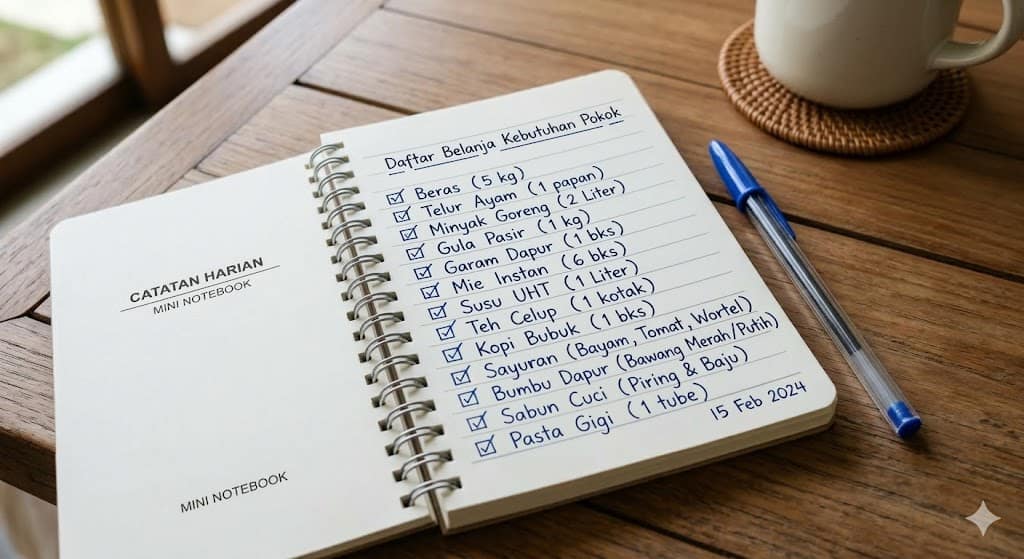 CATATAN HARIAN
MINI NOTEBOOK
MINI NOTEBOOK
Daftar Belanja Kebutuhan Pokok
☑ Beras (5 kg)
☑ Telur Ayam (1 papan)
☑ Minyak Goreng (2 Liter)
☑ Gula Pasir (1 kg)
☑ Garam Dapur (1 bks)
☑ Mie Instan (6 bks)
☑ Susu UHT (1 Liter)
☑ Teh Celup (1 kotak)
☑ Kopi Bubuk (1 bks)
☑ Sayuran (Bayam, Tomat, Wortel)
☑ Bumbu Dapur (Bawang Merah/Putih)
☑ Sabun Cuci (Piring & Baju)
☑ Pasta Gigi (1 tube)
15 Feb 2024